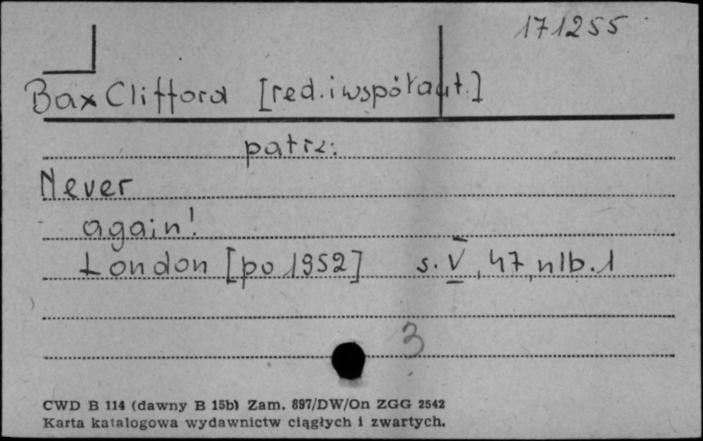 171255
Bax Clifford [red. i współaut.]
patrz:
Never
again!
London [po 1952] s. V, 47, nlb. 1
3
CWD B 114 (dawny B 15b) Zam. 897/DW/On ZGG 2542
Karta katalogowa wydawnictw ciągłych i zwartych.